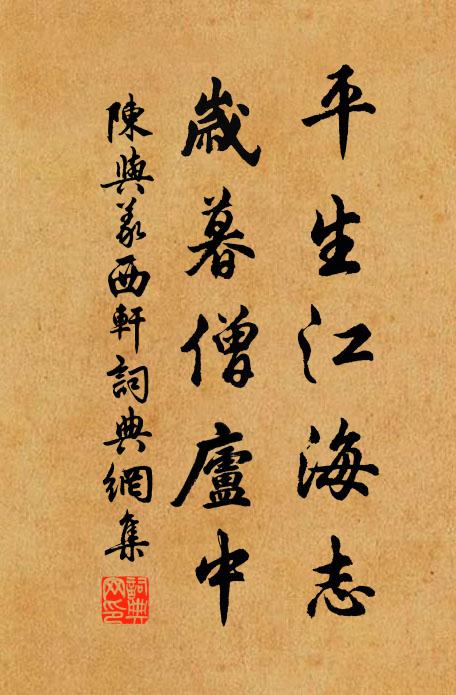 平生江海志
歲暮僧廬中
陳與義西軒詞典網集
詞典網印